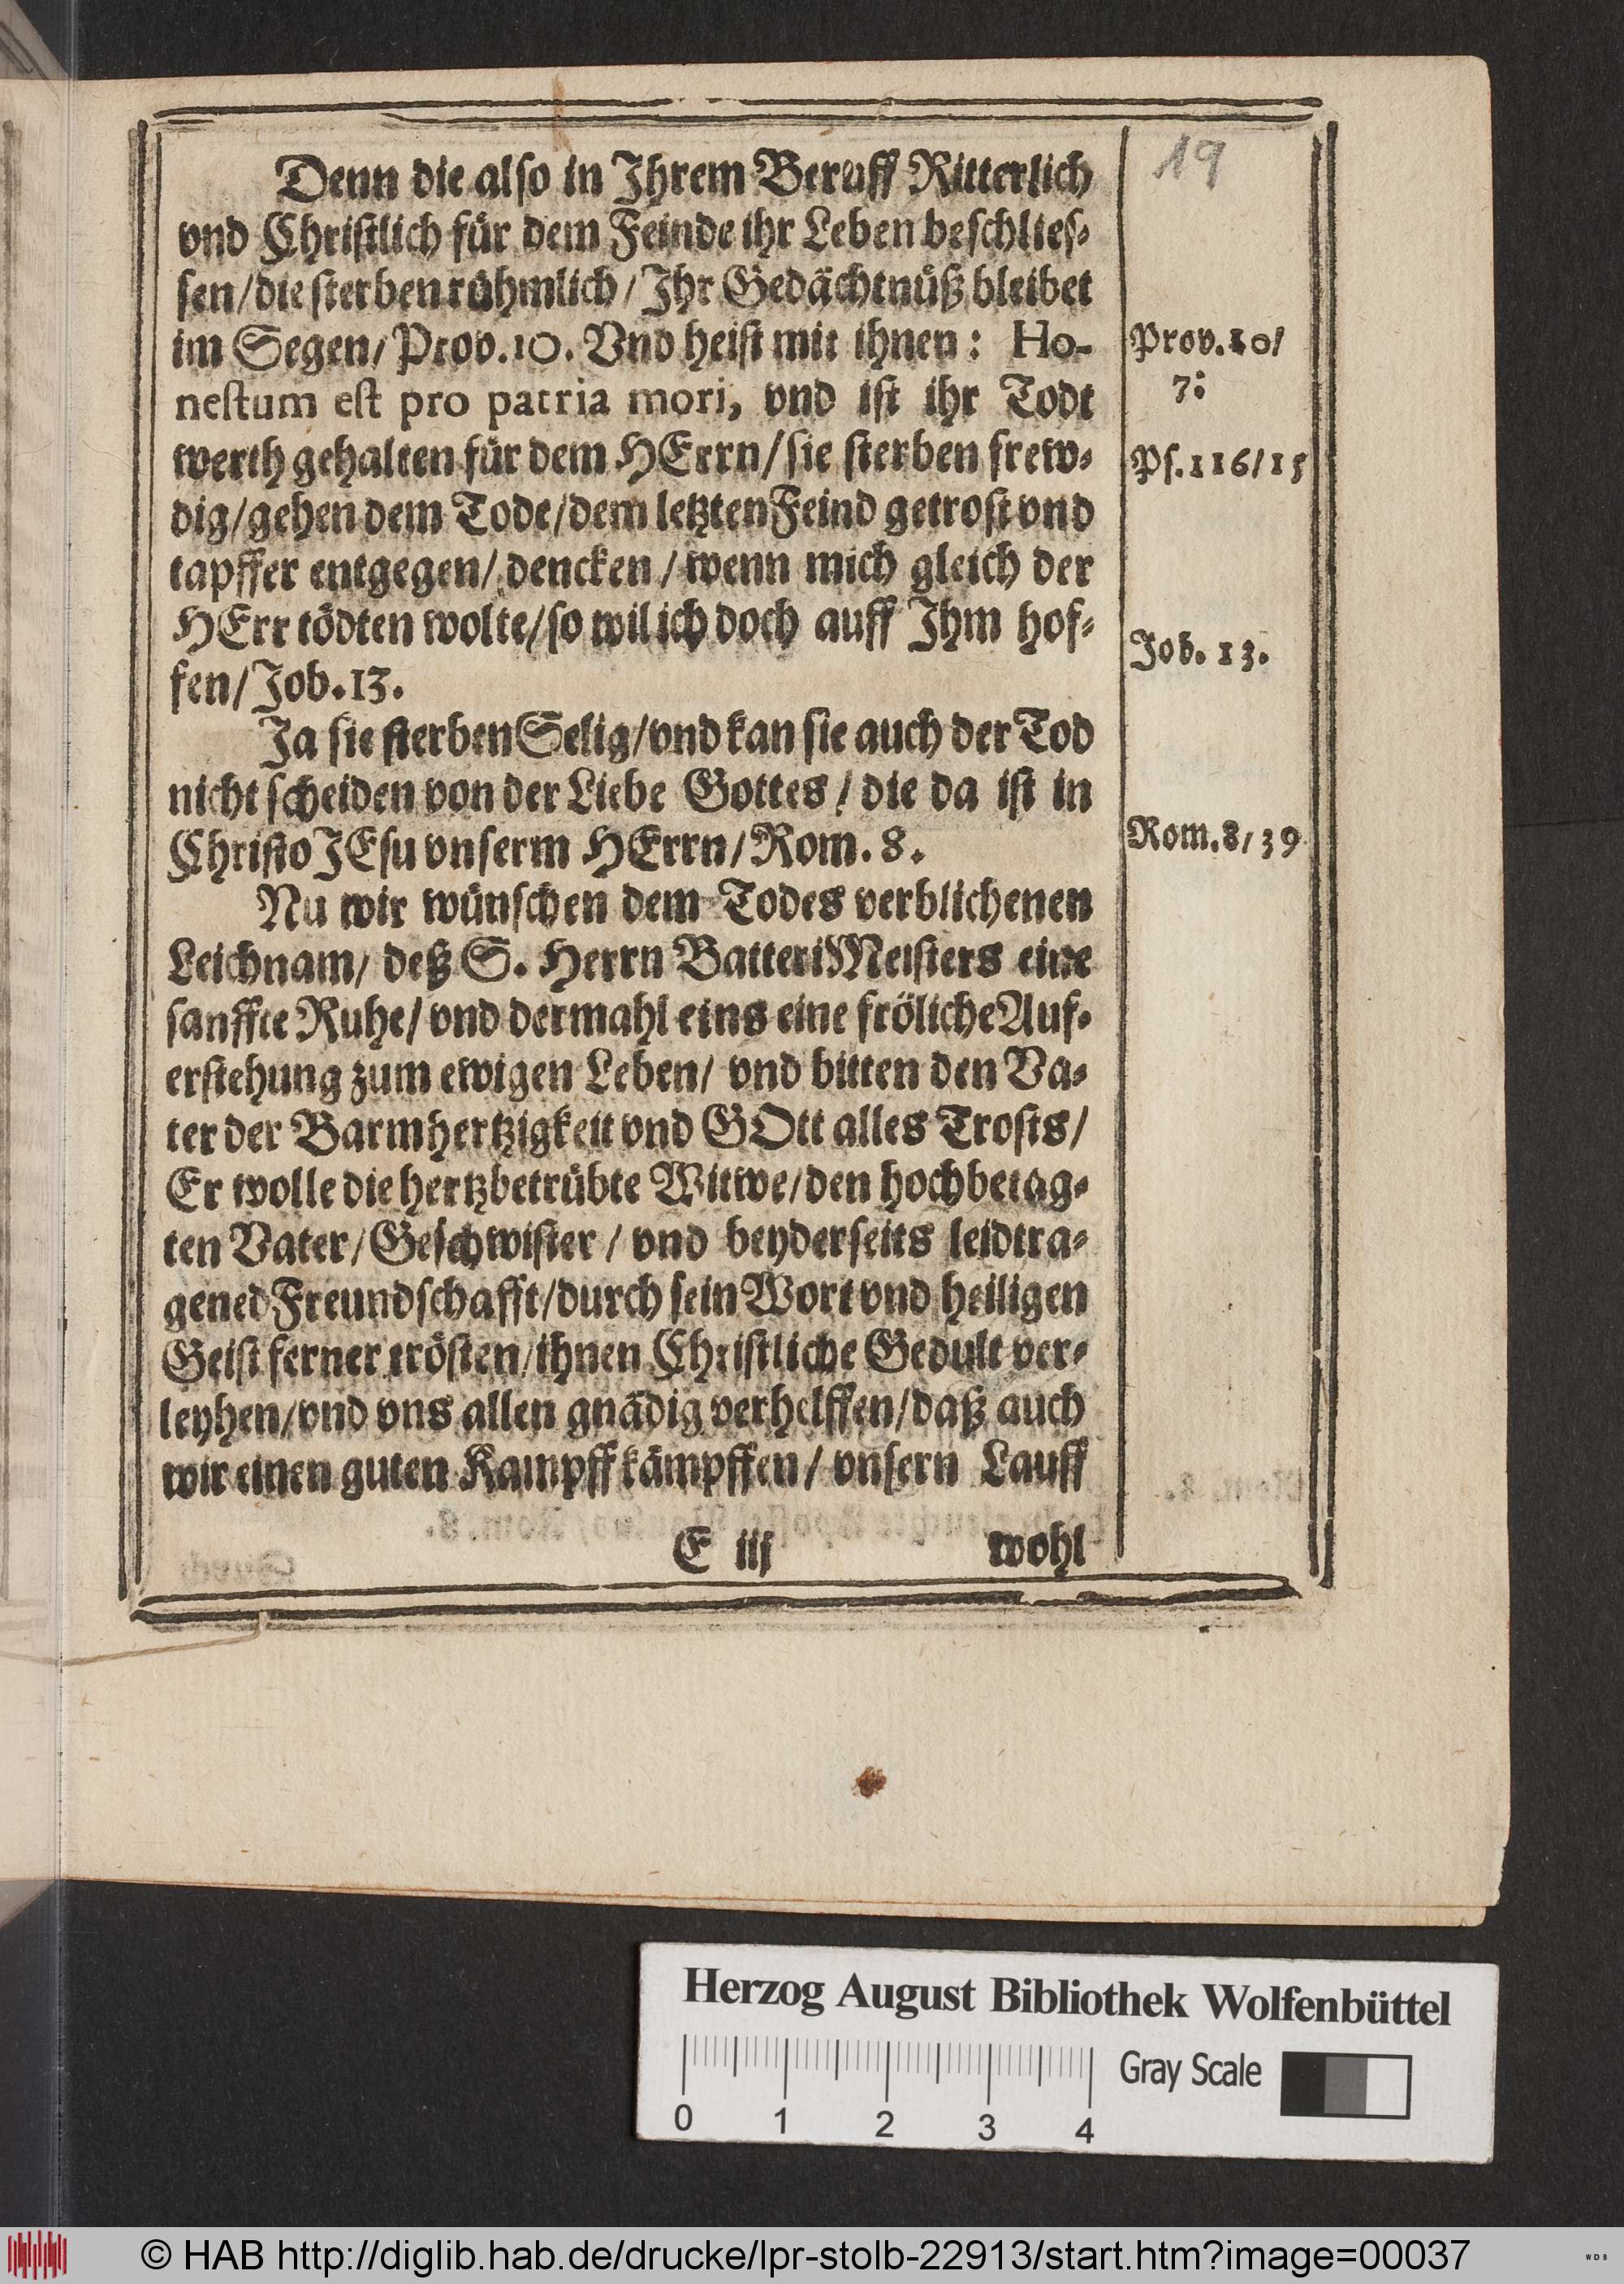 19
Denn die also in Ihrem Beruff Ritterlich
vnd Christlich für dem Feinde ihr Leben beschlies-
sen/die sterben rühmlich/Ihr Gedächtnüß bleibet
im Segen/Prov.10. Vnd heist mit ihnen: Ho-
Prov.10/
nestum est pro patria mori, vnd ist ihr Todt
7.
werth gehalten für dem HErrn/sie sterben frew-
Ps.116/15
dig/gehen dem Tode/dem letzten Feind getrost vnd
tapffer entgegen/ dencken/wenn mich gleich der
HErr tödten wolte/so wil ich doch auff Ihm hof-
Job. 13.
fen/Job.13.
Ja sie sterben Selig/vnd kan sie auch der Tod
nicht scheiden von der Liebe Gottes/ die da ist in
Christo JEsu vnserm HErrn/Rom. 8.
Rom.8/39
Nu wir wünschen dem Todes verblichenen
Leichnam/ deß S. Herrn BatteriMeisters eine
sanffte Ruhe/ vnd dermahl eins eine fröliche Auf-
erstehung zum ewigen Leben/ vnd bitten den Va-
ter der Barmhertzigkeit vnd GOtt alles Trosts/
Er wolle die hertzbetrübte Witwe/den hochbetag-
ten Vater/Geschwister/ vnd beyderseits leidtra-
gened Freundschafft/durch sein Wort vnd heiligen
Geist ferner trösten/ihnen Christliche Gedult ver-
leyhen/vnd vns allen gnädig verhelffen/daß auch
wir einen guten Kampff kämpffen/ vnsern Lauff
E iij wohl
Herzog August Bibliothek Wolfenbüttel
Gray Scale
0 1 2 3 4
© HAB http://diglib.hab.de/drucke/lpr-stolb-22913/start.htm?image=00037
WDB